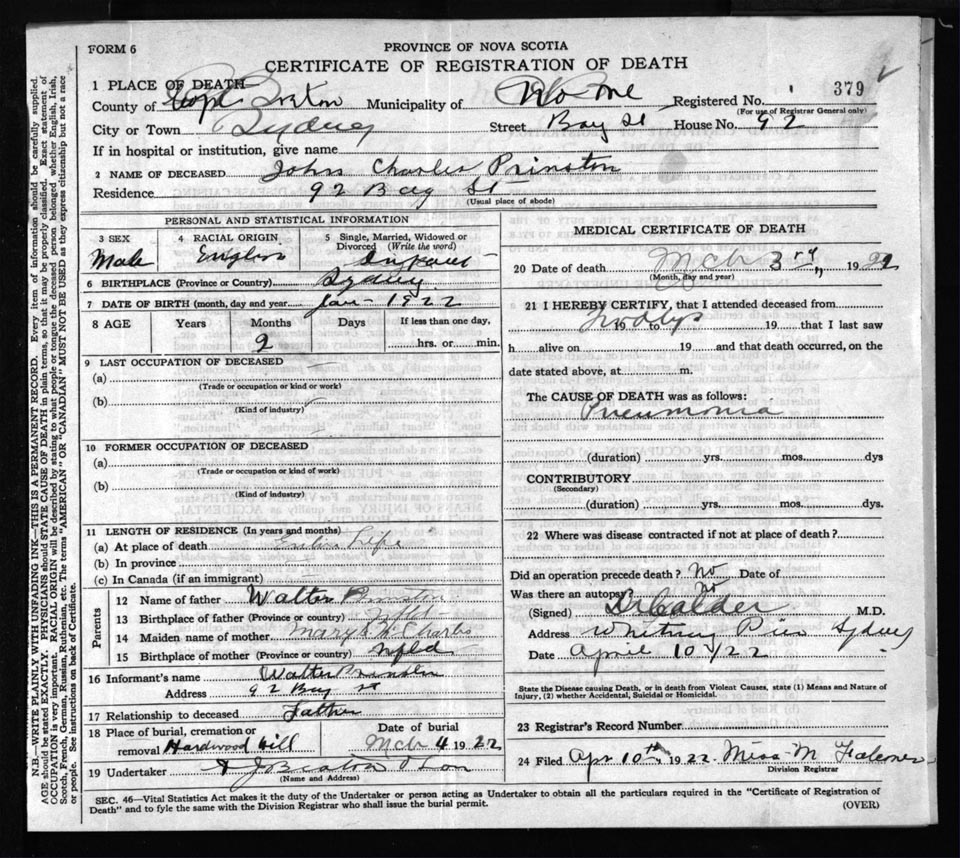 FORM 6
PROVINCE OF NOVA SCOTIA
CERTIFICATE OF REGISTRATION OF DEATH
379
1 PLACE OF DEATH
County of Cape Breton Municipality of Registered No.
(For use of Registrar General only)
City or Town Sydney Street Bay St House No. 92
If in hospital or institution, give name
2 NAME OF DECEASED John Charles Prinston
Residence 92 Bay St
(Usual place of abode)
PERSONAL AND STATISTICAL INFORMATION
3 SEX
Male
4 RACIAL ORIGIN
English
5 Single, Married, Widowed or Divorced (Write the word)
Infant
6 BIRTHPLACE (Province or Country) Sydney
7 DATE OF BIRTH (month, day and year) Jan - 1922
8 AGE Years Months Days If less than one day,
2 hrs. or min.
9 LAST OCCUPATION OF DECEASED
(a)
(Trade or occupation or kind or work)
(b)
(Kind of industry)
10 FORMER OCCUPATION OF DECEASED
(a)
(Trade or occupation or kind of work)
(b)
(Kind of industry)
11 LENGTH OF RESIDENCE (In years and months)
(a) At place of death Entire Life
(b) In province
(c) In Canada (if an immigrant)
Parents
12 Name of father Walter Prinston
13 Birthplace of father (Province or country) Nfld
14 Maiden name of mother Mary
15 Birthplace of mother (Province or country) Nfld
16 Informant's name Walter Prinston
Address 92 Bay St
17 Relationship to deceased Father
18 Place of burial, cremation or
removal Hardwood Hill
Date of burial
Mch 4 1922
19 Undertaker A J Beaton & Son
(Name and Address)
MEDICAL CERTIFICATE OF DEATH
20 Date of death Mch 3rd 1922
(Month, day and year)
21 I HEREBY CERTIFY, that I attended deceased from
19 to 19 that I last saw
h alive on 19 and that death occurred, on the
date stated above, at m.
The CAUSE OF DEATH was as follows:
Pneumonia
(duration) yrs. mos. dys
CONTRIBUTORY
(Secondary)
(duration) yrs. mos. dys.
22 Where was disease contracted if not at place of death?
Did an operation precede death? No Date of
Was there an autopsy? No
(Signed) Dr Calder M.D.
Address Whitney Pier Sydney
Date April 10/22
State the Disease causing Death, or in death from Violent Causes, state (1) Means and Nature of
Injury, (2) whether Accidental, Suicidal or Homicidal.
23 Registrar's Record Number
24 Filed Apr 10th 1922 Miss M Falconer
Division Registrar
SEC. 46—Vital Statistics Act makes it the duty of the Undertaker or person acting as Undertaker to obtain all the particulars required in the "Certificate of Registration of
Death" and to fyle the same with the Division Registrar who shall issue the burial permit.
(OVER)
N.B.—WRITE PLAINLY WITH UNFADING INK—THIS IS A PERMANENT RECORD. Every item of information should be carefully supplied.
AGE should be stated EXACTLY. PHYSICIANS should STATE CAUSE OF DEATH in plain terms, so that it may be properly classified. Exact statement of
OCCUPATION is very important. RACIAL ORIGIN will be described by stating to what people or tongue the deceased person belonged whether English, Irish,
Scotch, French, German, Russian, Ruthenian, etc. The terms "AMERICAN" OR "CANADIAN" MUST NOT BE USED as they express citizenship but not a race
or people. See instructions on back of Certificate.